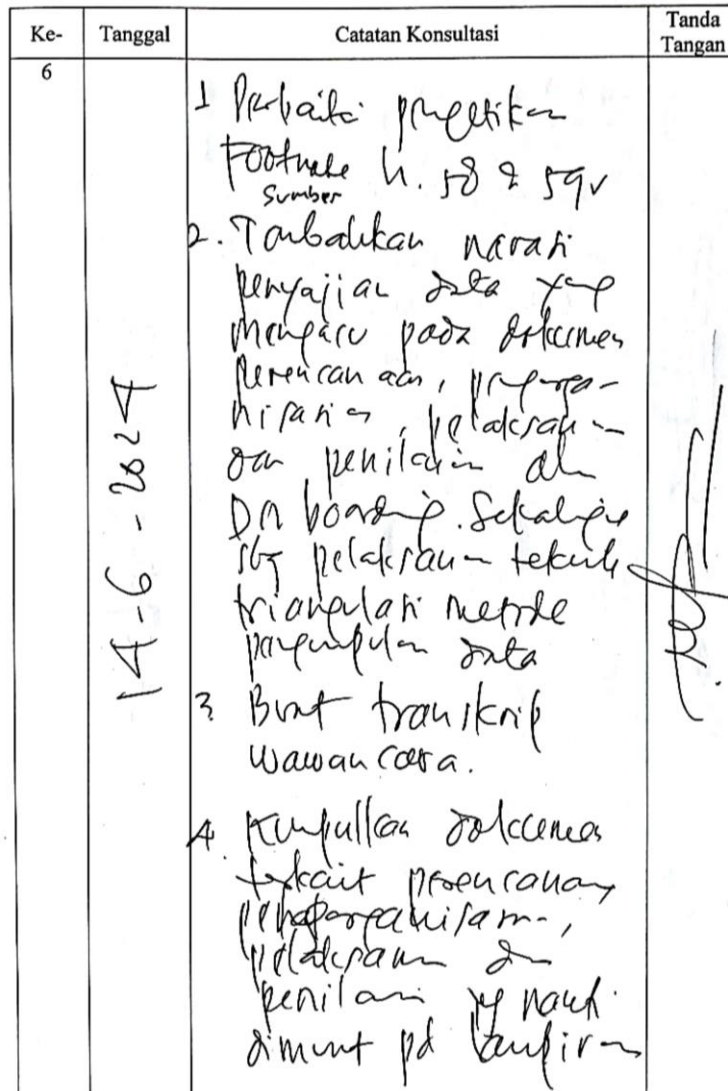 Ke-
Tanggal
Catatan Konsultasi
Tanda
Tangan
6
14-6-2024
1 Perbaiki pengetikan
Footnote h. 58 & 59
Sumber
2. Tambahkan narasi
penyajian data yang
mengacu pada dokumen
perencanaan, pengorga-
nisasian, pelaksanaan
dan penilaian dlm
boarding. Sekaligus
sbg pelaksanaan teknik
triangulasi metode
pengumpulan data
3 Buat transkrip
wawancara.
4. Kumpulkan dokumen
terkait perencanaan,
pengorganisasian,
pelaksanaan dan
penilaian yg nanti
dimuat pd lampiran